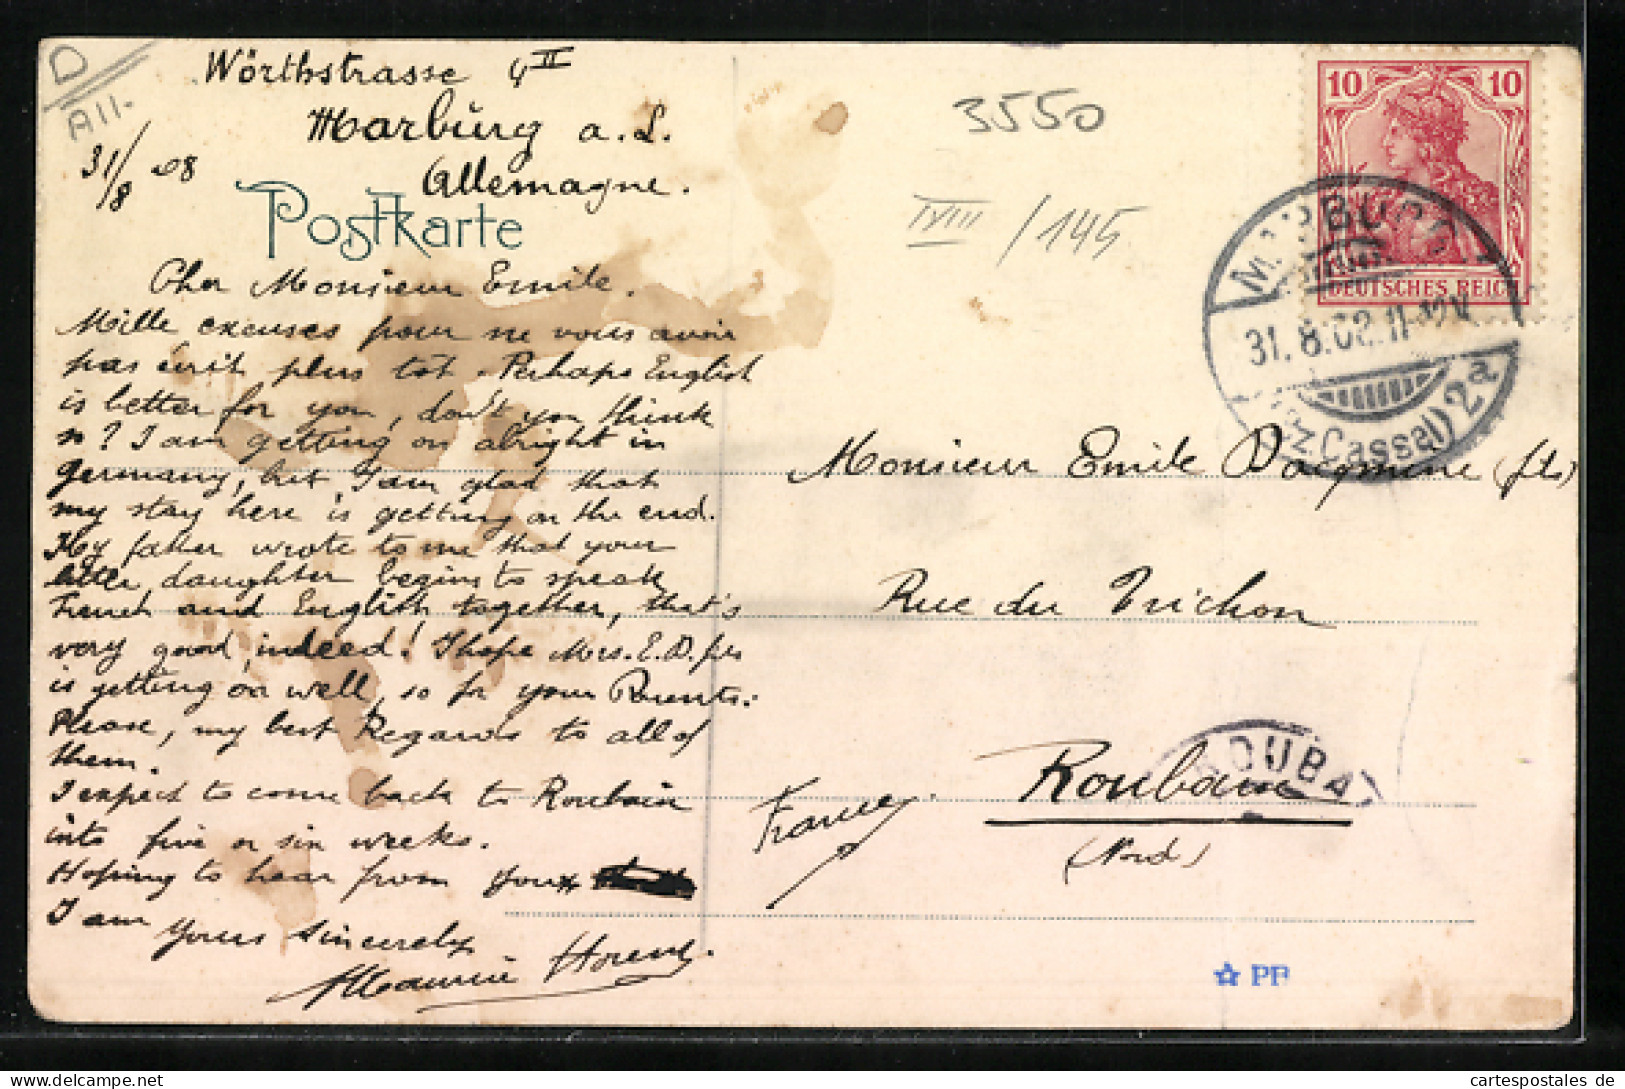 D
All.
Wörthstrasse 4 II
Marburg a. L.
Allemagne.
31/8 08
Postkarte
Cher Monsieur Emile,
Mille excuses pour ne vous avoir
pas écrit plus tôt. Perhaps English
is better for you, don't you think
so? I am getting on alright in
Germany, but I am glad that
my stay here is getting on the end.
My father wrote to me that your
little daughter begins to speak
French and English together, that's
very good, indeed! I hope Mrs. E. D. fils
is getting on well, so for your Parents.
Please, my best Regards to all of
them.
I expect to come back to Roubaix
into five or six weeks.
Hoping to hear from you
I am
Yours sincerely
Maurice
3550
IXIII /145
10 10
DEUTSCHES REICH
MARBURG
31.8.08.11-12V
(Bz.Cassel) 2a
Monsieur Emile (fils)
Rue du Trichon
Roubaix
ROUBA
(Nord)
France
☆ PP
cartespostales de